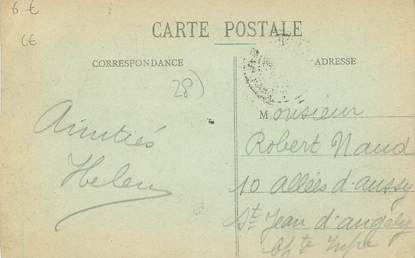 6 €
6€
CARTE POSTALE
CORRESPONDANCE
ADRESSE
28)
Amitiés
Helen
Monsieur
Robert Naud
10 allées d'aussy
St Jean d'angely
Infre